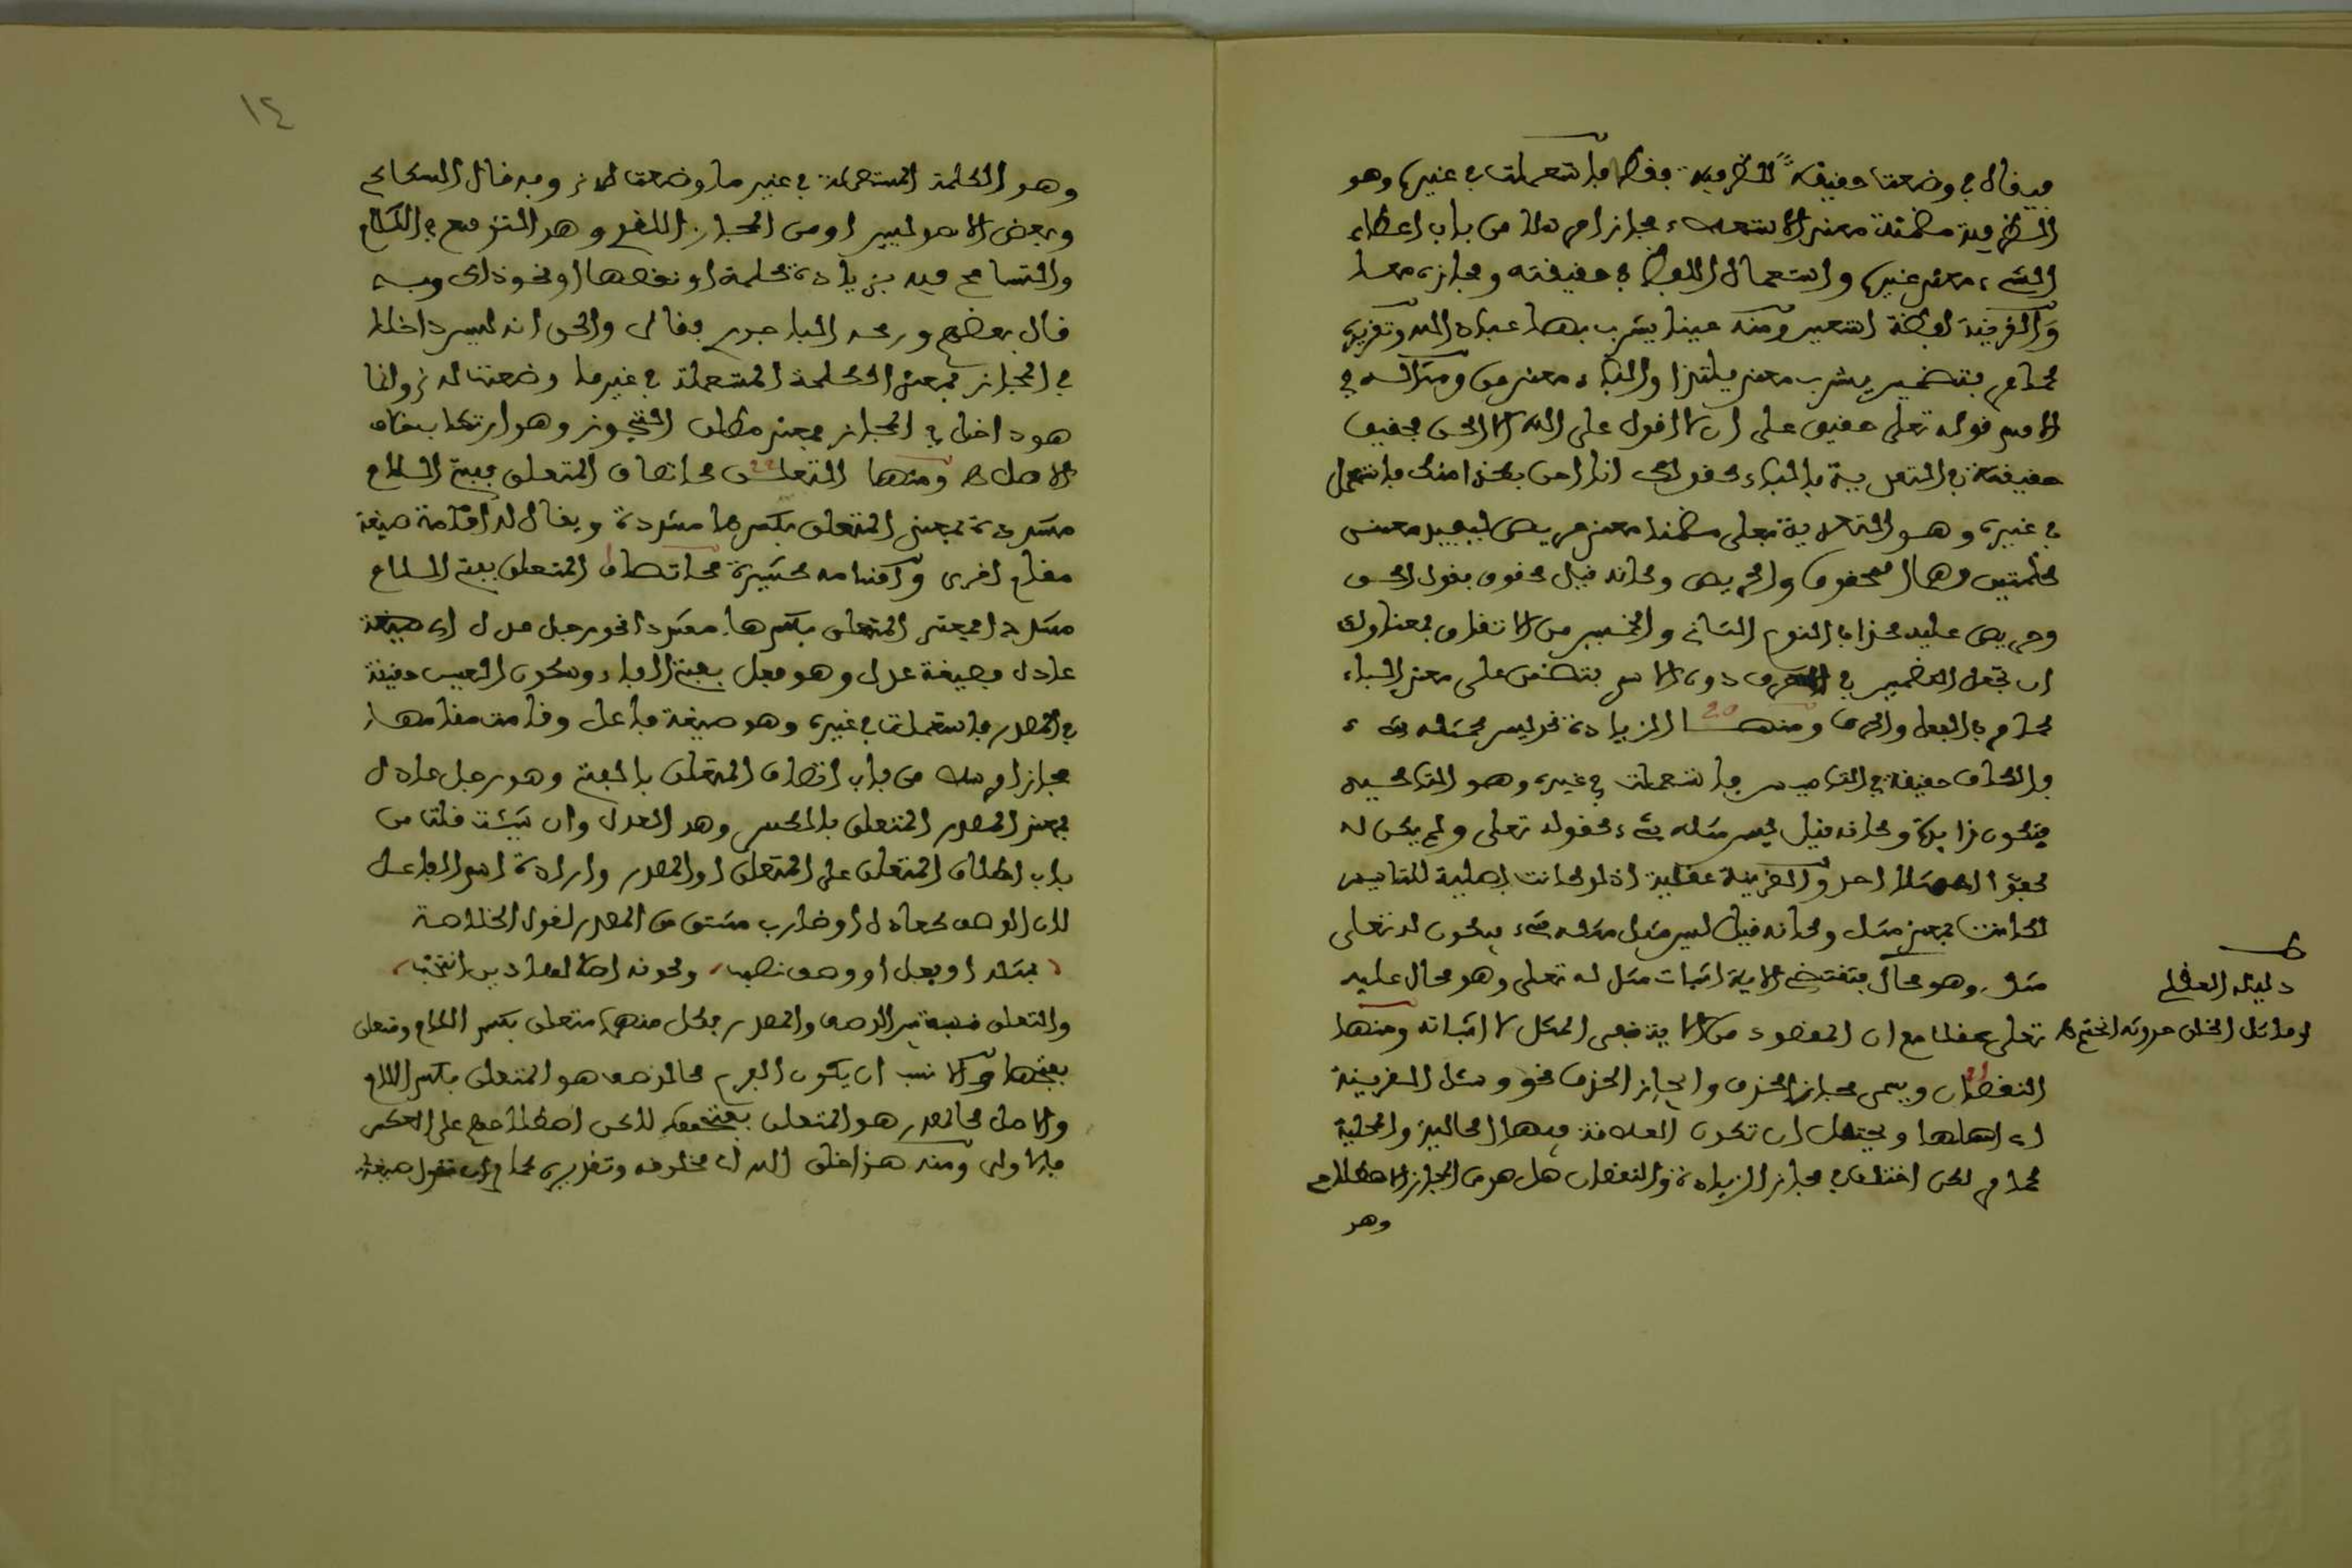 فيقال في وضعت حقيقة للظرفية فقط فاستعملت في غيرها وهو
الظرفية مضمنة معنى الاستعلاء مجازا مرسلا من باب اعطاء
الشيء معنى غيره واستعمال اللفظ في حقيقته ومجازه معا
والقرينة لفظة السعير ومنه عينا يشرب بها عباد الله وتقريره
كما مر بتضمين يشرب معنى يلتذ او الباء معنى من ومثاله في
الاسم قوله تعلى حقيق على ان لا اقول على الله الا الحق فحقيق
حقيقة في التعدية بالباء كقولك انا احق بكذا منك فاستعمل
في غيره وهو التعدية بعلى مضمنا معنى حريص ليفيد معنى
كلمتين وهما محقوق والحريص وكانه قيل محقوق بقول الحق
وحريص عليه كذا في النوع الثاني والخبير من الاتقان بمعناه ولك
ان تجعل التضمين في الحرف دون الاسم بتضمن على معنى الباء
كما مر في الفعل والحرف ومنها الزيادة نحو ليس كمثله شيء
فالكاف حقيقة في التاسيس فاستعملت في غيره وهو التاكيد
فتكون زايدة وكانه قيل ليس مثله شيء كقوله تعلى ولم يكن له
كفؤا احد والقرينة عقلية اذ لو كانت اصلية للتاسيس
لكانت بمعنى مثل وكانه قيل ليس مثل مثله شيء فيكون له تعلى
مثل وهو محال فتقتضي الاية اثبات مثل له تعلى وهو محال عليه
تعلى عقلا مع ان المقصود من الاية نفي المثل لا اثباته ومنها
النقصان ويسمى مجاز الحذف وايجاز الحذف نحو وسئل القرينة
اي اهلها ويحتمل ان تكون العلاقة فيها الحالية والمحلية
كما مر لكن اختلف في مجاز الزيادة والنقصان هل هو من المجاز الاصطلاحي
وهو
دليله العقلي
لو ماثل الخلق حدوثه انحتم
١٤
وهو الكلمة المستعملة في غير ما وضعت له وبه قال السكاكي
وبعض الاصوليين او من المجاز اللغوي وهو التوسع في الكلام
والتسامح فيه بزيادة كلمة او نقصها او نحو ذلك وبه
قال بعضهم ورجحه الباجوري فقال والحق انه ليس داخلا
في المجاز بمعنى الكلمة المستعملة في غير ما وضعت له وانما
هو داخل في المجاز بمعنى مطلق التجوز وهو ارتكاب خلاف
الاصل ومنها التعلق كاتصاف المتعلق بفتح اللام
مفردة بمعنى المتعلق بكسرها مفردة ويقال له اقامة صيغة
مقام اخرى واقسامه كثيرة كاتصاف المتعلق بفتح اللام
مفردا بمعنى المتعلق بكسرها مفردا نحو رجل عدل اي صيغة
عادل فصيغة عدل وهو فعل بفتح الفاء وسكون العين حقيقة
في المصدر فاستعملت في غيره وهو صيغة فاعل وقامت مقامها
مجازا مرسلا من باب اتصاف المتعلق بالفتح وهو رجل عادل
بمعنى المصدر المتعلق بالكسر وهو العدل وان شئت قلت من
باب اطلاق المتعلق على المتعلق او المصدر وارادة اسم الفاعل
لان الوصف كعادل او ضارب مشتق من المصدر لقول الخلاصة
بمثله او فعل او وصف نصب وكونه اصلا لهذين انتخب
والتعلق نسبة بين الوصف والمصدر فكل منهما متعلق بكسر اللام ومتعلق
بفتحها والانسب ان يكون الفرع كالوصف هو المتعلق بكسر اللام
والاصل كالمصدر هو المتعلق بفتحها لكن اصطلاحهم على العكس
فالاولى ومنه هذا خلق الله اي مخلوقه وتقريره كما مر ان تقول صيغة